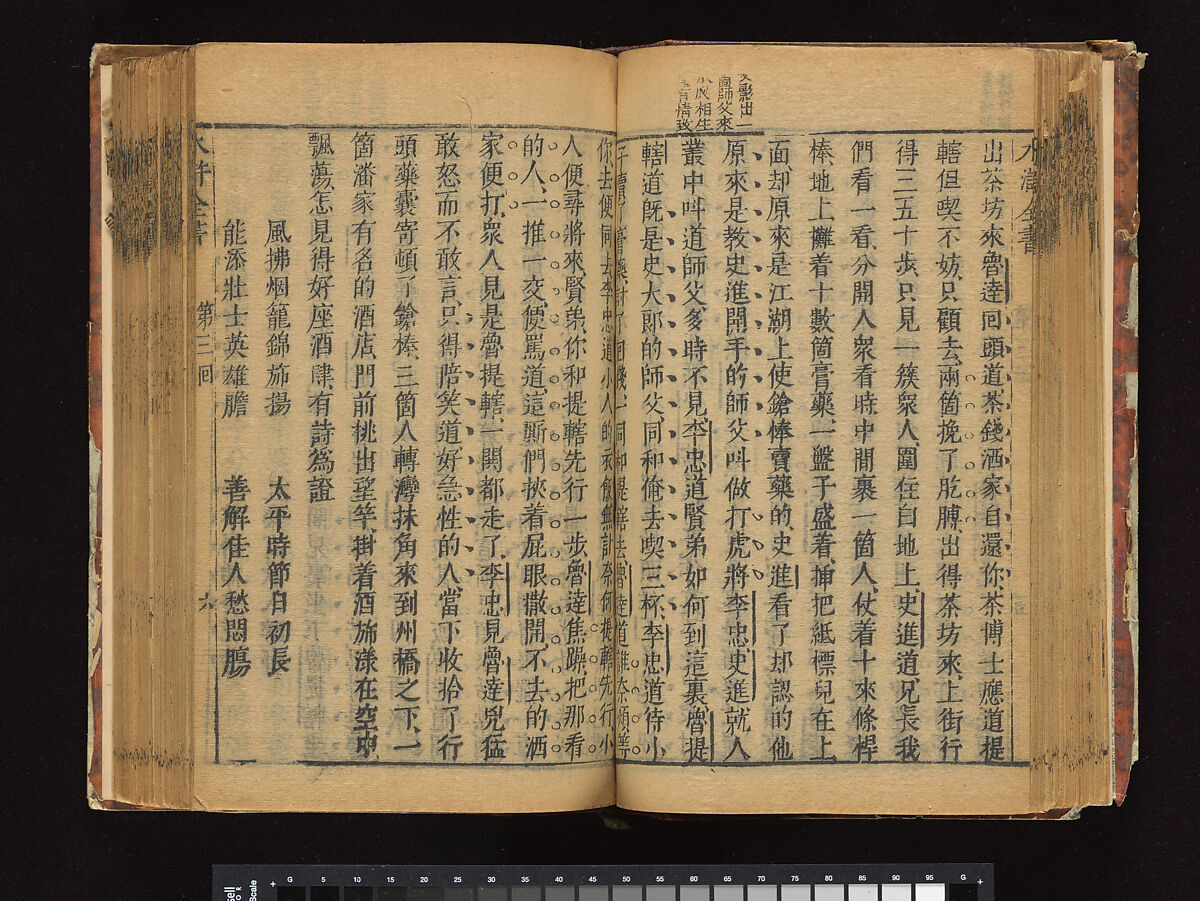 水滸全書
出茶坊來魯達回頭道茶錢洒家自還你茶博士應道提
轄但喫不妨只顧去兩箇挽了肐膊出得茶坊來上街行
得三五十步只見一簇衆人圍住白地上史進道兄長我
們看一看分開人衆看時中間裹一箇人仗着十來條桿
棒地上攤着十數箇膏藥一盤子盛着插把紙標兒在上
面却原來是江湖上使鎗棒賣藥的史進看了却認的他
影出一
師父來
相生
有情致
原來是教史進開手的師父叫做打虎將李忠史進就人
叢中叫道師父多時不見李忠道賢弟如何到這裏魯提
轄道既是史大郎的師父同和俺去喫三杯李忠道待小
子賣了膏藥討了回錢一同和提轄去魯達道誰奈煩等
你去便同去李忠道小人的衣飯無計奈何提轄先行小
人便尋將來賢弟你和提轄先行一步魯達焦躁把那看
的人一推一交便罵道這厮們挾着屁眼撒開不去的洒
家便打衆人見是魯提轄一鬨都走了李忠見魯達兇猛
敢怒而不敢言只得陪笑道好急性的人當下收拾了行
頭藥囊寄頓了鎗棒三箇人轉灣抹角來到州橋之下一
箇潘家有名的酒店門前挑出望竿掛着酒斾漾在空中
飄蕩怎見得好座酒肆有詩為證
風拂烟籠錦斾揚 太平時節日初長
能添壯士英雄膽 善解佳人愁悶腸
水滸全書 第三回 六
G 5 10 15 20 25 30 35 40 45 50 55 60 65 70 75 80 85 90 95 G